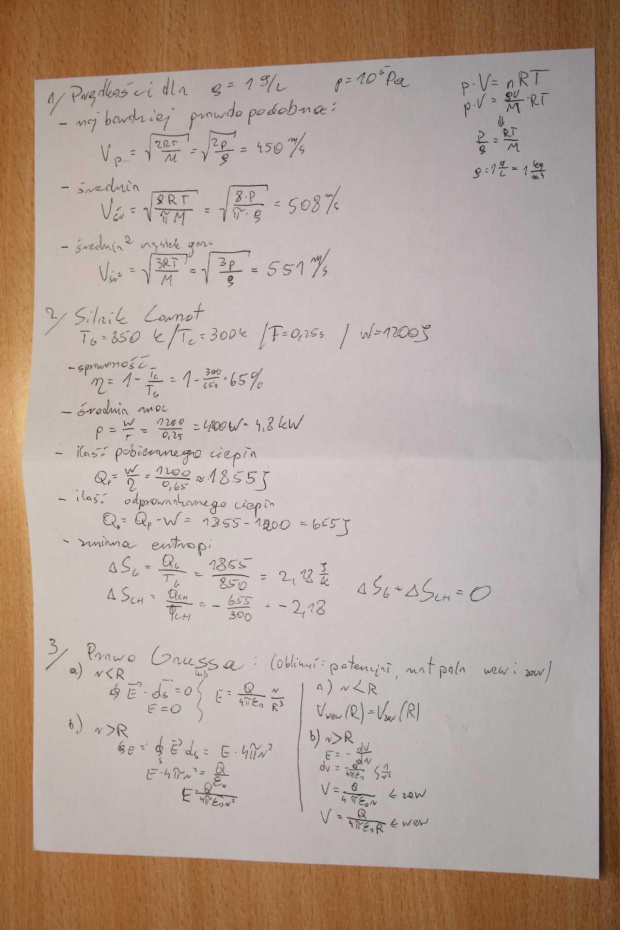 1/ Prędkości dla ρ = 1 g/L p = 10⁵ Pa
- najbardziej prawdopodobna:
Vp = √(2RT/M) = √(2p/ρ) = 450 m/s
- średnia
Vśr = √(8RT/πM) = √(8·p/π·ρ) = 508 m/s
- średnia²
Vśr² = √(3RT/M) = √(3p/ρ) = 551 m/s
p·V = nRT
p·V = ρV/M · RT
⇓
p/ρ = RT/M
ρ = 1 g/L = 1 kg/m³
2/ Silnik Carnot
TG = 850 K / TC = 300K / T = 0,25s / W = 1200J
- sprawność
η = 1 - TC/TG = 1 - 300/850 = 65%
- średnia moc
P = W/t = 1200/0,25 = 4800W = 4,8 kW
- ilość pobieranego ciepła
Qp = W/η = 1200/0,65 ≈ 1855J
- ilość odprowadzanego ciepła
Qo = Qp - W = 1855 - 1200 = 655J
- zmiana entropi
ΔSG = QG/TG = 1855/850 = 2,18 J/K
ΔSCH = QCH/TCH = - 655/300 = -2,18
ΔSG + ΔSCH = 0
3/ Prawo Gaussa: (Oblicz: potencjał, nat pola wew i zew)
a) r<R
∮ E⃗ · ds⃗ = 0
E = 0
E = Q/4πε₀ r/R³
b) r>R
ΦE = ∮ E⃗ ds = E · 4πr²
E·4πr² = Q/ε₀
E = Q/4πε₀r²
a) r<R
Vwew(R) = Vzew(R)
b) r>R
E = - dV/dr
dV = - Q/4πε₀ ∫ 1/r²
V = Q/4πε₀r ← zew
V = Q/4πε₀R ← wew